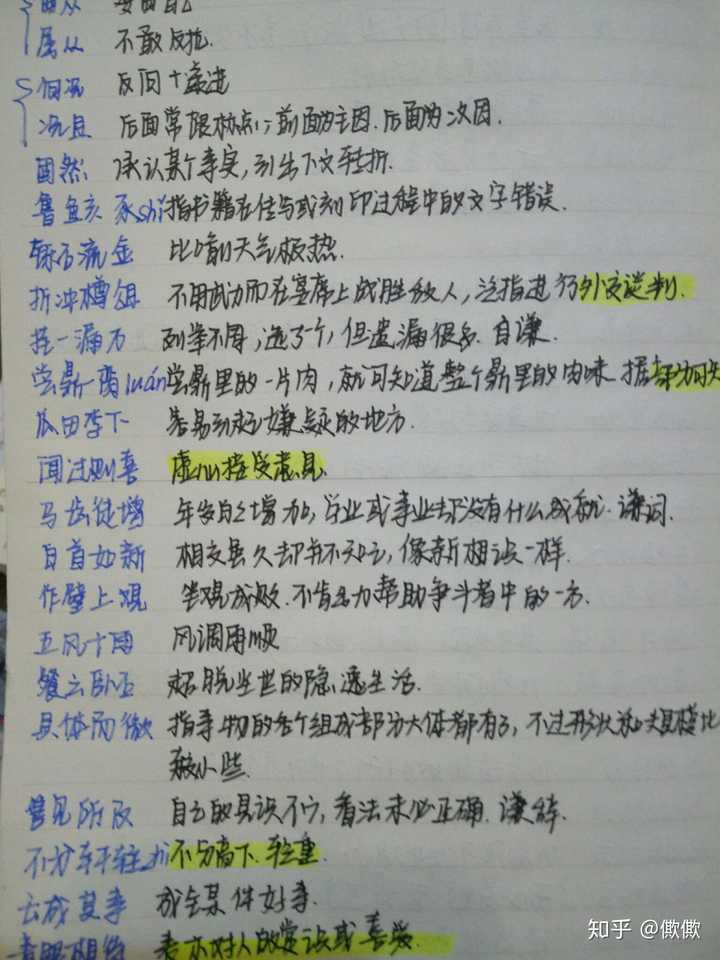 屈从 委曲自己
属从 不敢反抗.
何况 反问+递进
况且 后面常跟状点;前面为主因.后面为次因.
固然: 承认某个事实,引出下文转折.
鲁鱼亥豕shǐ指书籍在传写或刻印过程中的文字错误.
铄石流金 比喻天气极热.
折冲樽俎 不用武力而在宴席上战胜敌人,泛指进行外交谈判.
挂一漏万 列举不周,选了个,但遗漏很多.自谦.
尝鼎一脔luán尝鼎里的一片肉,就可知道整个鼎里的肉味.据部分可知
瓜田李下 容易引起嫌疑的地方.
闻过则喜 虚心接受意见
马齿徒增 年岁自己增加,学业或事业却没有什么成就.谦词.
白首如新 相交虽久却并不知己,像新相识一样.
作壁上观 坐观成败.不肯出力帮助争斗者中的一方.
五风十雨 风调雨顺
餐云卧石 超脱尘世的隐逸生活.
具体而微 指事物的各个组成部分大体都有了,不过形状和规模比
较小些.
管见所及 自己的见识不广,看法未必正确.谦辞.
不分轩轾zhì不分高下.轻重.
玉成其事 成全某件好事.
青眼相待 表示对人的赏识或喜爱.
知乎 @僌僌